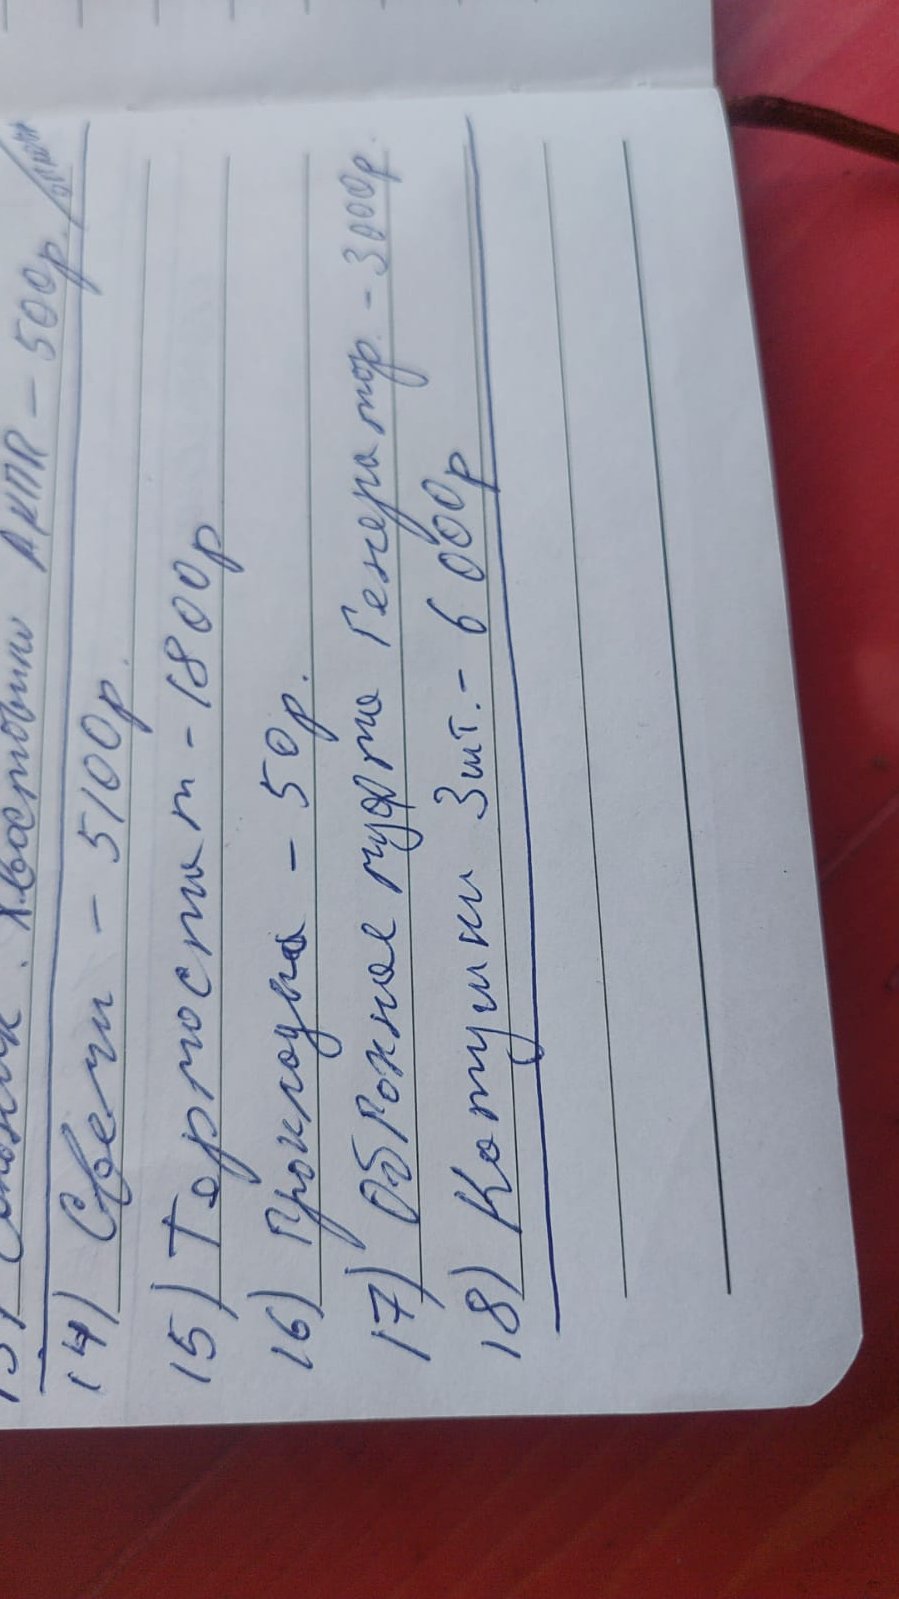 Хвостовики АКПП - 500р.
14) Свечи - 5100р.
15) Термостат - 1800р
16) Прокладка - 50р.
17) Обгонная муфта Генератор. - 3000р.
18) Катушки 3шт. - 6 000р